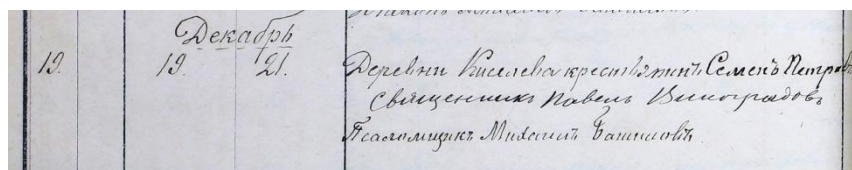 Декабрь
19. 19. 21. Деревни Киселева крестьянинъ Семенъ Петровъ
Священникъ Павелъ Виноградовъ
Псаломщикъ Михаилъ